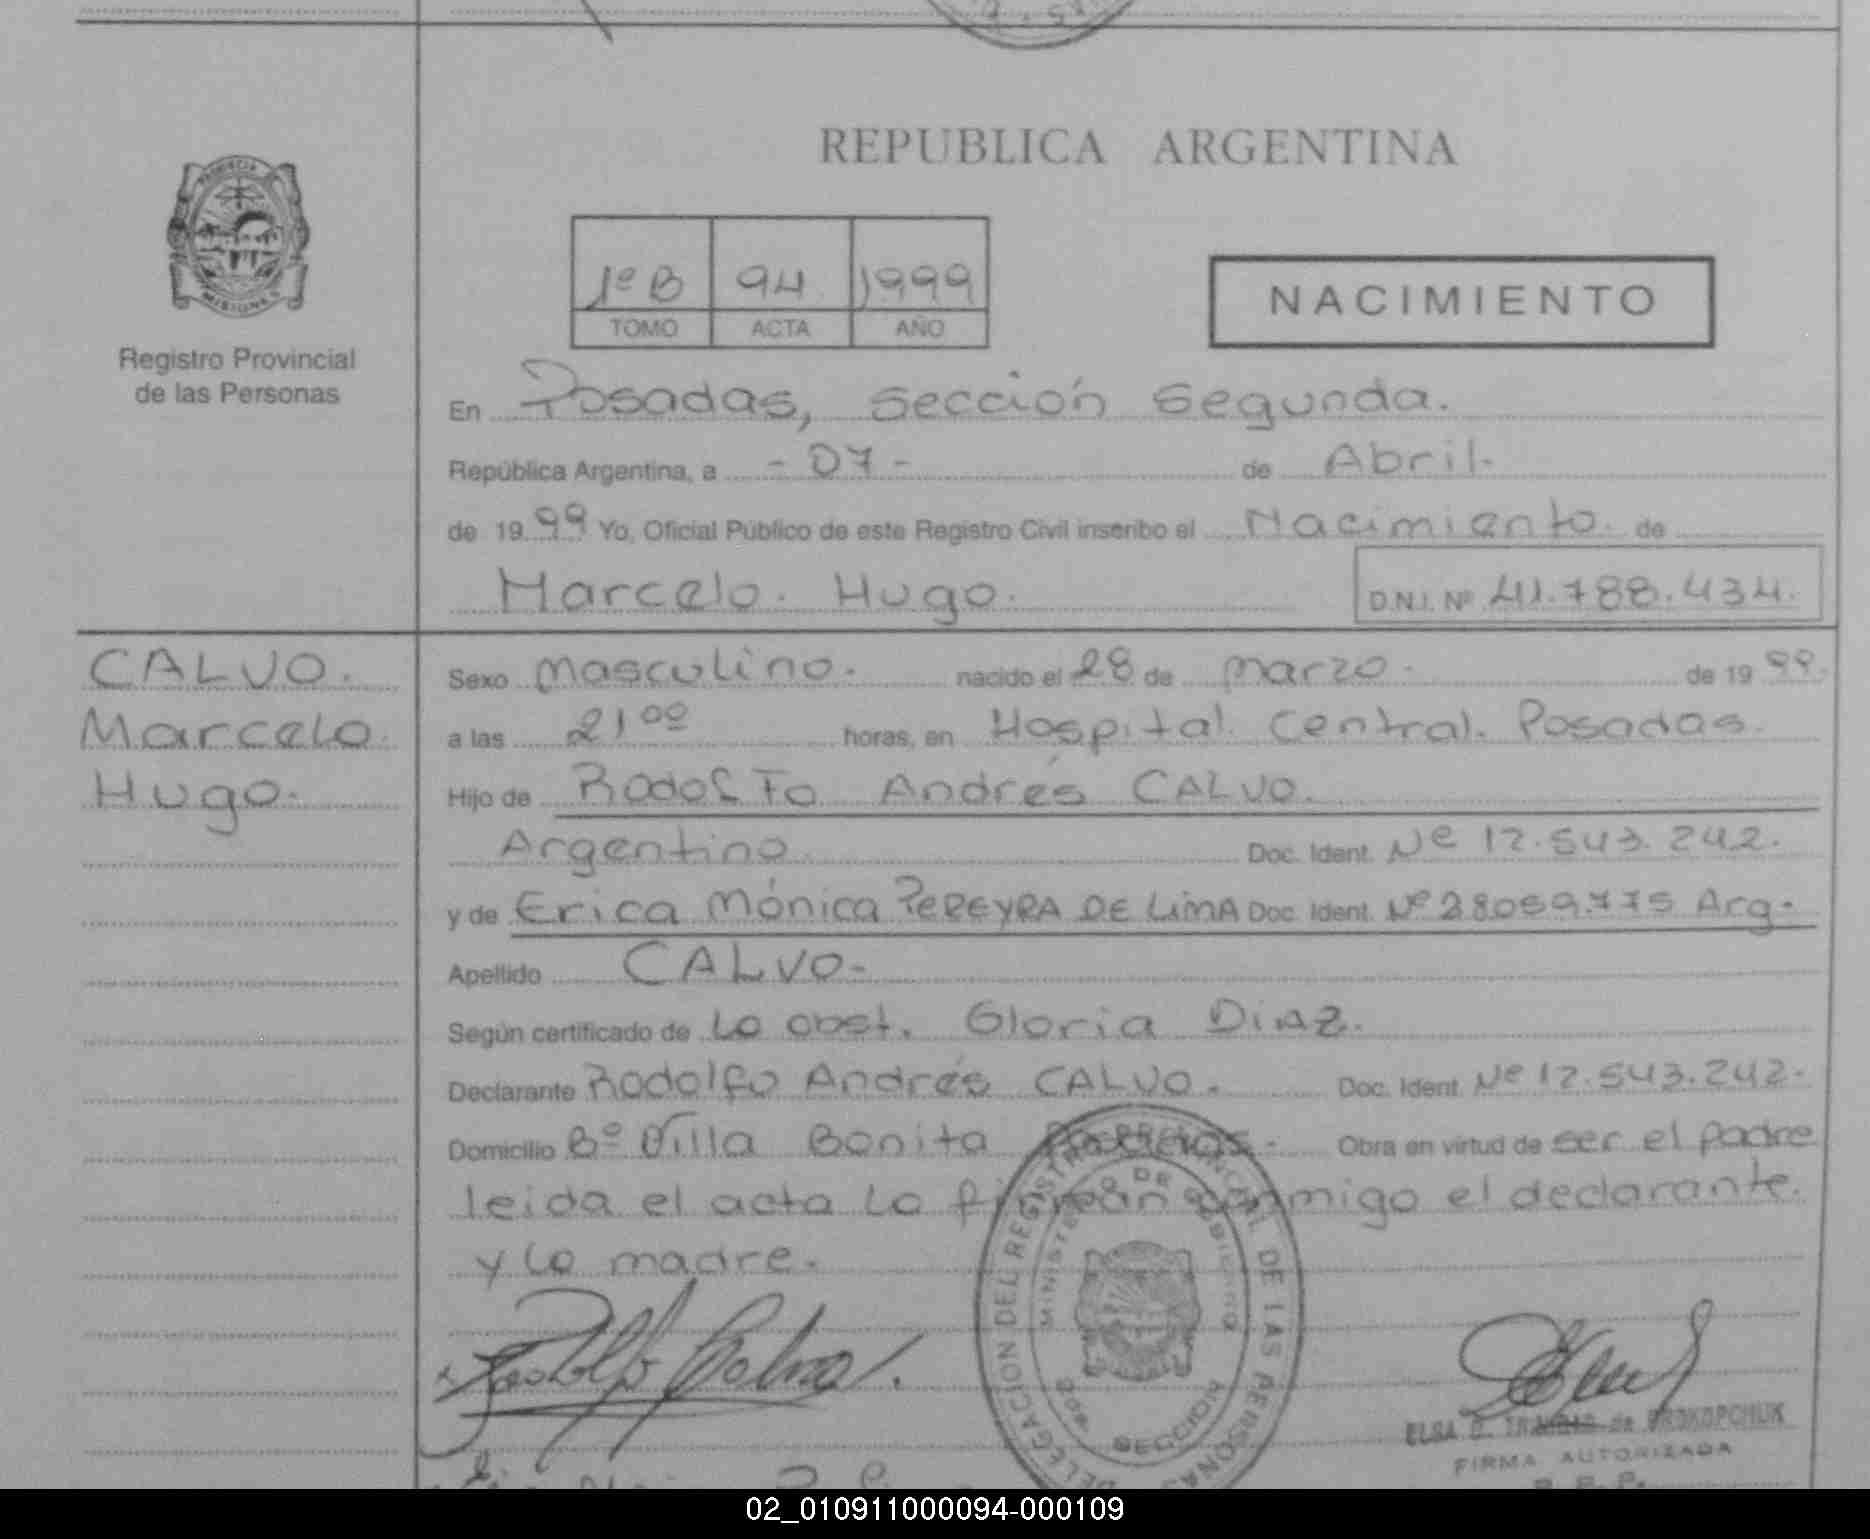 REPUBLICA ARGENTINA
PROVINCIA
MISIONES
Registro Provincial
de las Personas
1º B 94 1999
TOMO ACTA AÑO
NACIMIENTO
En Posadas, sección segunda.
República Argentina, a - 07 - de Abril-
de 1999 Yo, Oficial Público de este Registro Civil inscribo el Nacimiento. de
Marcelo. Hugo. D.N.I. Nº 41.788.434.
CALVO.
Marcelo.
Hugo.
Sexo masculino. nacido el 28 de marzo. de 1999.
a las 21ºº horas, en Hospital. Central. Posadas.
Hijo de Rodolfo Andrés CALVO.
Argentino. Doc. Ident. Nº 12.543.242.
y de Erica Mónica PEREYRA DE LIMA Doc. Ident. Nº 28.059.775 Arg.
Apellido CALVO-
Según certificado de La obst. Gloria Diaz.
Declarante Rodolfo Andrés CALVO. Doc. Ident. Nº 12.543.242.
Domicilio Bº Villa Bonita Posadas.- Obra en virtud de ser el padre
leida el acta la firman conmigo el declarante.
y la madre.
DELEGACION DEL REGISTRO PROVINCIAL DE LAS PERSONAS
MINISTERIO DE GOBIERNO
SECCION
ELSA de PROKOPCHUK
FIRMA AUTORIZADA
R. P. P.
02_010911000094-000109